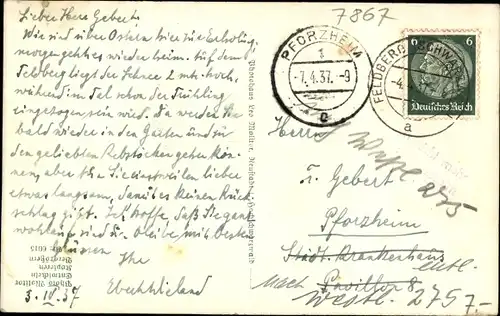 7867
Lieber Herr Gebert.
Wir sind über Ostern hier zur Erholung,
morgen geht es wieder heim. Auf dem
Feldberg liegt der Schnee 2 mtr. hoch,
während im Tal schon der Frühling
eingezogen sein wird. Da werden Sie
bald wieder in den Garten und zu
den geliebten Rebstöcken gehen kön-
nen, aber tun Sie einstweilen lieber
etwas langsam, damit es keinen Rück-
schlag gibt. Ich hoffe, daß Sie ganz
wohlauf sind u. bleibe mit besten
Grüssen
Ihr
3. IV. 37
PFORZHEIM
1
-7.4.37.-9
c
FELDBERG (SCHWARZW
a
6 6
Deutsches Reich
Herrn
u. Gebert
Pforzheim
Städt. Krankenhaus
entl.
Pavillon 8.
nach
Westl. 275